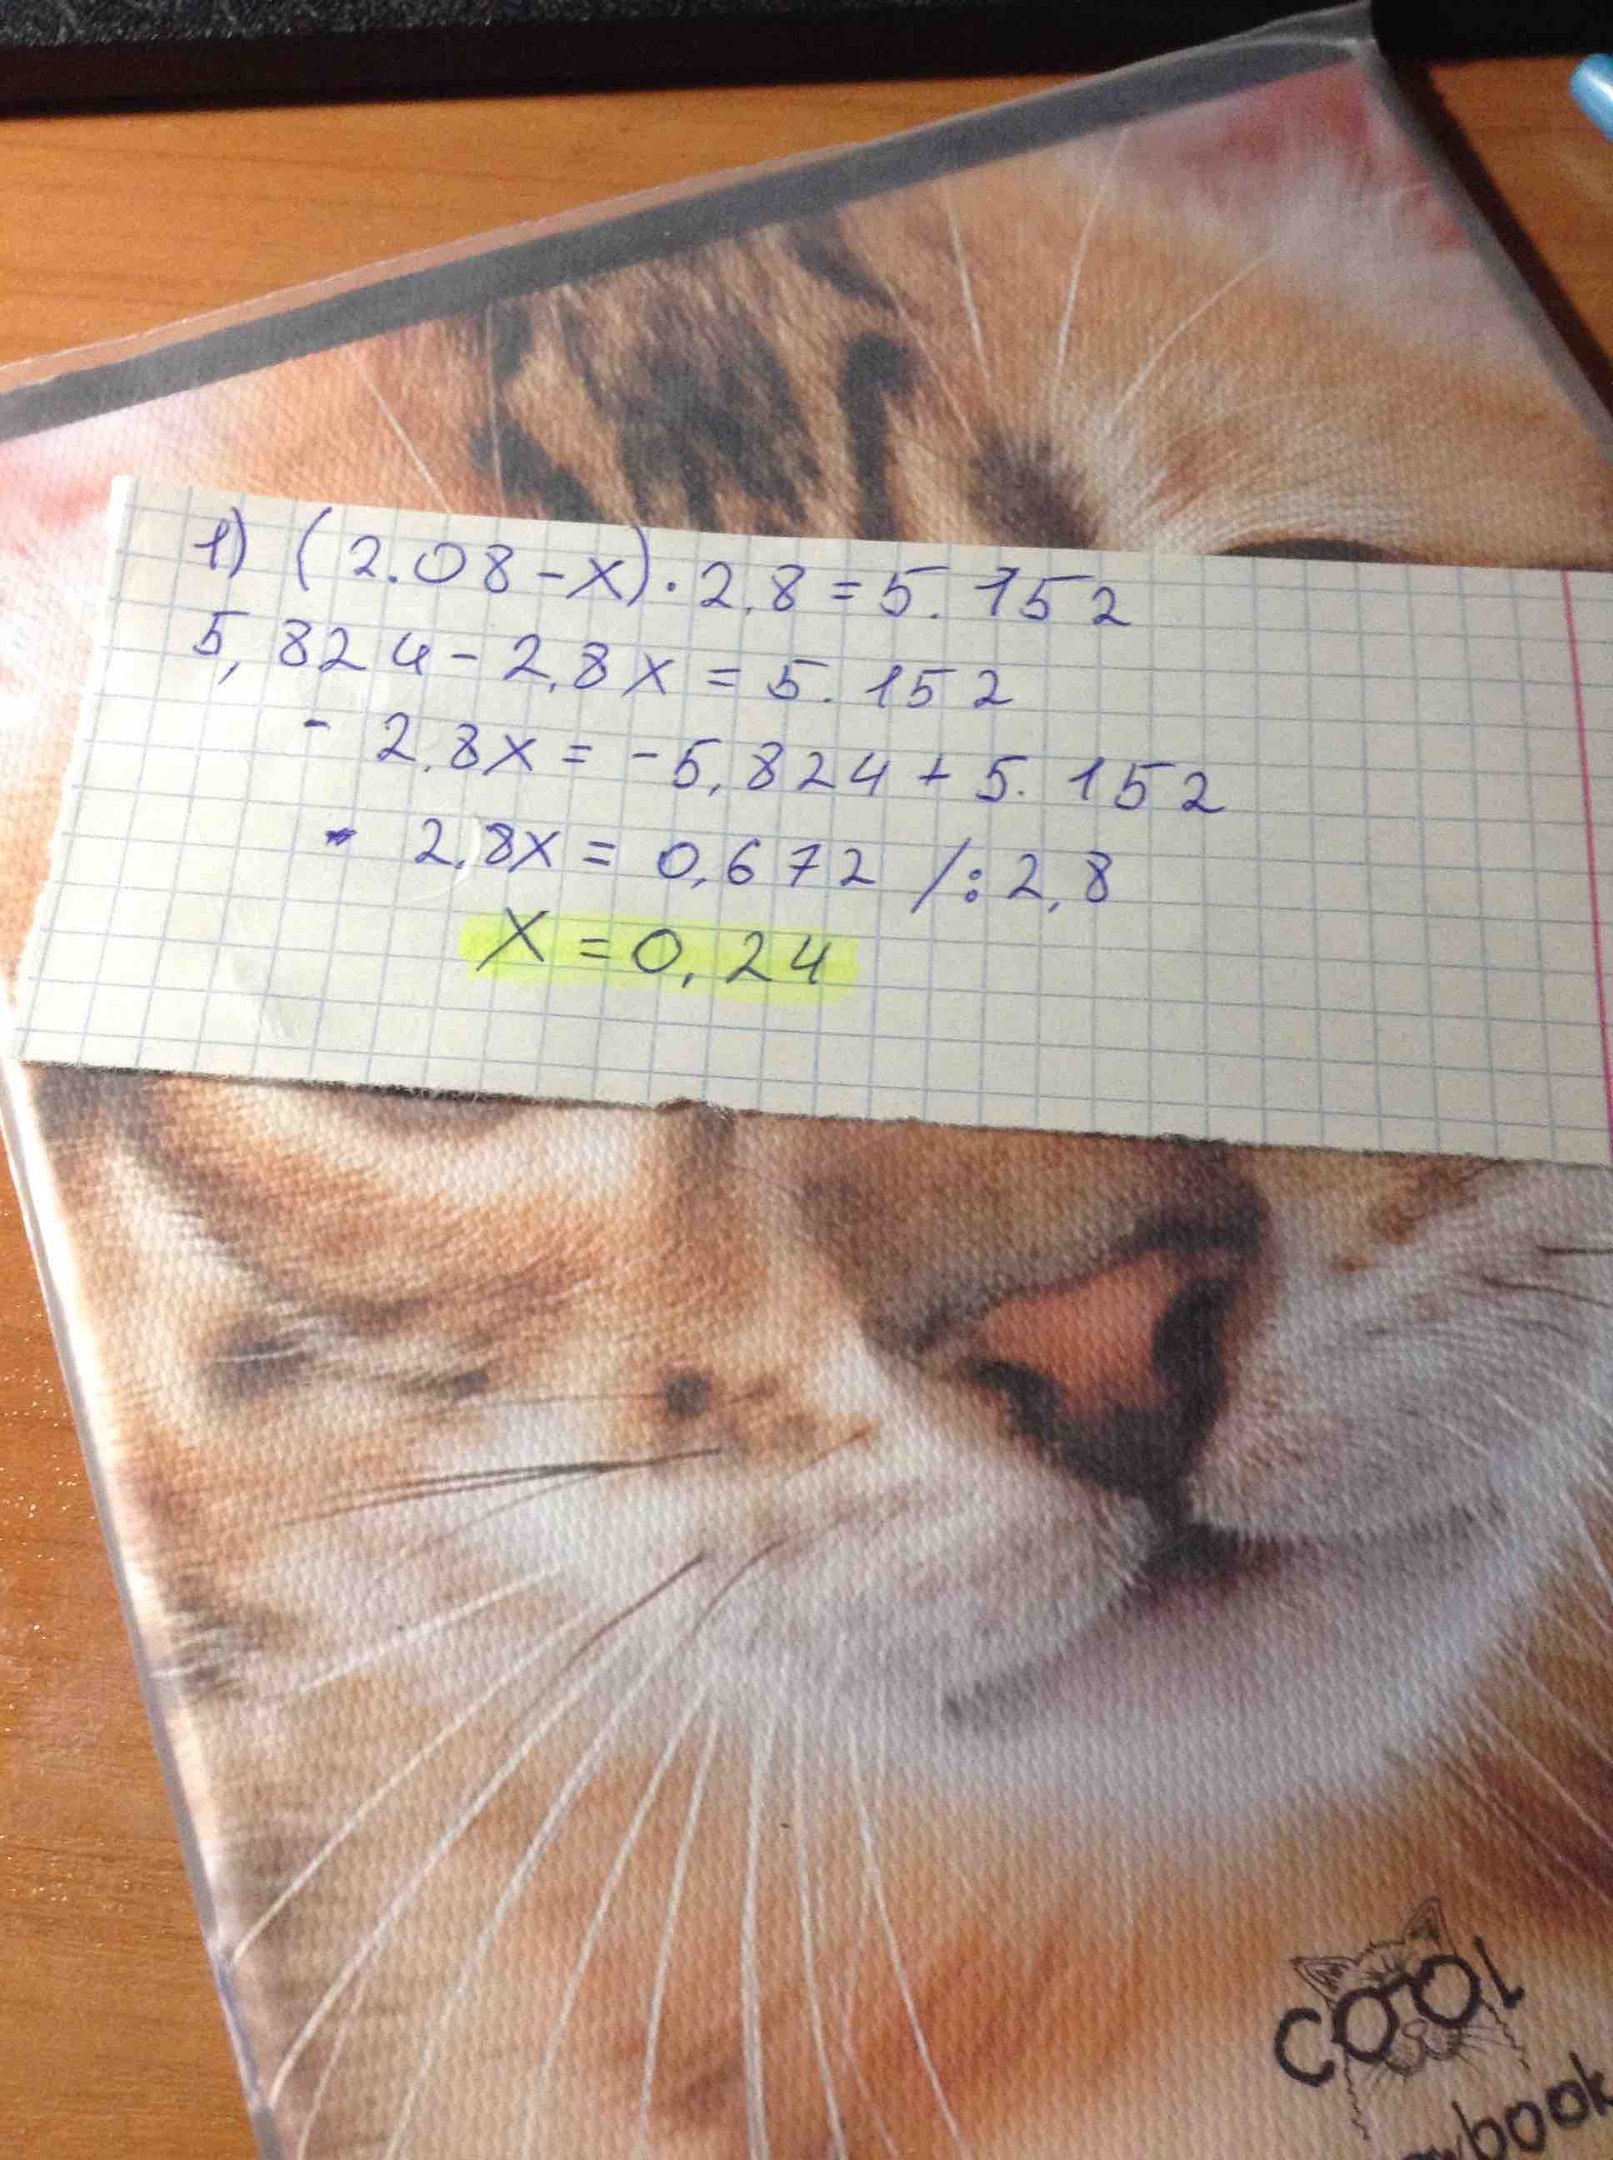 1) (2.08-x)·2,8=5.152
5,824-2,8x=5.152
- 2.8x=-5,824+5.152
- 2.8x=0,672 /:2,8
x=0,24
COOL
book